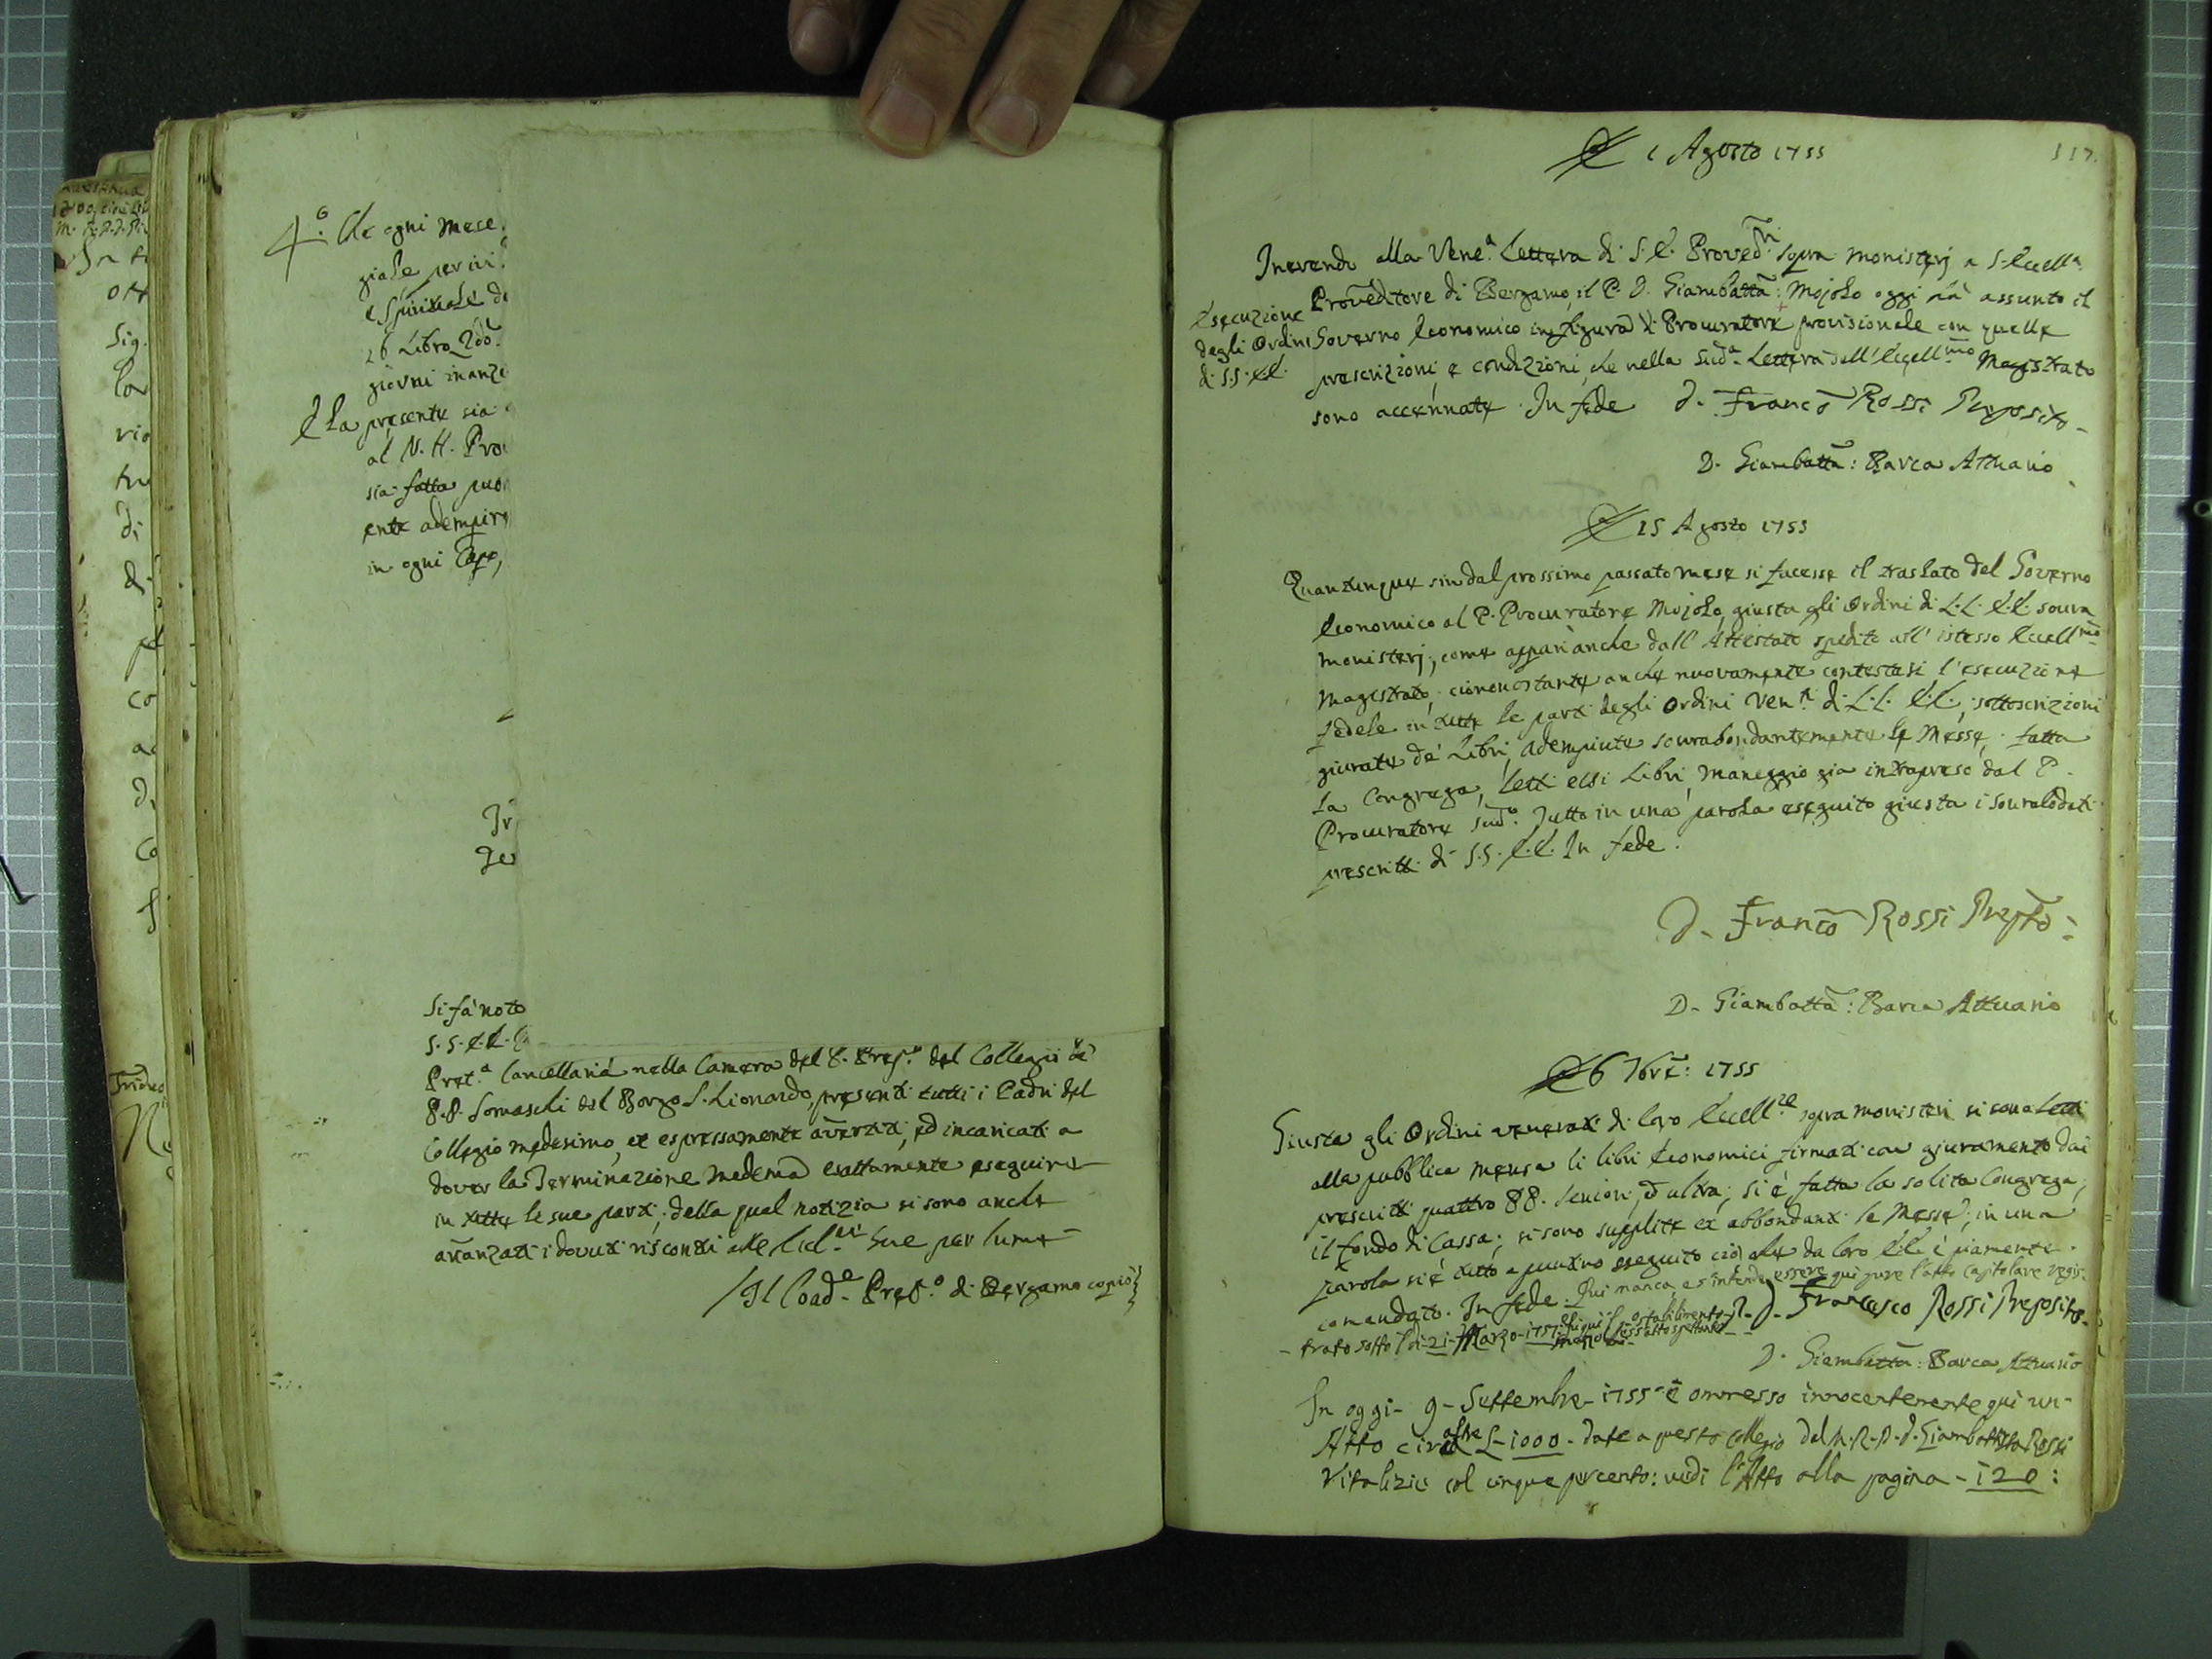 4.º Che ogni mese
giale, per ivi
e Spirituale d
giorni inanzi
E la presente sia
al N. H. Pro
sia fatta
ente adempir
in ogni Capo,
Si fà noto
S. S. E. E.
Pret.ª Cancellaria nella Camera del P. Prep.º del Collegio de'
P.P. Somaschi del Borgo S. Lionardo, presenti tutti i Padri del
Collegio medesimo, et espressamente avertiti, ed incaricati a
dover la Terminazione medema esattamente eseguire
in tutte le sue parti; della qual notizia si sono anche
avanzati i dovuti riscontri alle Sue per lume
Il Coad.e Pref.º di Bergamo copiò
117.
1 Agosto 1755
Inerendo alla Vene.ª Lettera di S. E. Proved.ri sopra monisterj a S. Eccell.ª
Proveditore di Bergamo, il P. D. Giambatta: Mojolo oggi hà assunto il
Esecuzione
degli Ordini
di S.S. E.E.
Governo Economico in figura di Procuratore provisionale con quelle
prescrizioni, e condizioni, che nella Sud.ª Lettera dell'Eccell.mo Magistrato
sono accennate. In fede D. Franco Rossi Preposito
D. Giambatta: Barca Attuario
25 Agosto 1755
Quantunque sin dal prossimo passato mese si facesse il traslato del Governo
Economico al P. Procuratore Mojolo, giusta gli Ordini di L.L. E.E. sovra
monisterj, come appari anche dall'Attestato spedito all'istesso Eccell.mo
Magistrato, ciononostante anche nuovamente contestasi l'esecuzione
fedele in tutte le parti degli Ordini Ven.ti di L.L. E.E., sottoscrizioni
giurate de' Libri, adempiute sovrabondantemente le Messe, fatta
la Congrega, letti essi Libri, maneggio gia intrapreso dal P.
Procuratore sud.º Tutto in una parola eseguito giusta i sovralodati
prescritti di S.S. E.E. In fede.
D. Franco Rossi Prepto
D. Giambatta: Barca Attuario
6 7bre: 1755
Giusta gli Ordini venerati di loro Eccell.ze sopra monisteri si sono letti
alla pubblica mensa li libri Economici firmati con giuramento dai
prescritti quattro PP. Seniori, ed ultra; si è fatta la solita Congrega;
il fondo di Cassa; si sono supplite et abbondanti le Messe; in una
parola si è tutto a puntino eseguito ciò che da loro E.E. è piamente
comandato. In fede. Qui manca, e s'intende essere qui pure l'atto Capitolare regis-
trato sotto li 21 Marzo 1757 D. Francesco Rossi Preposito
D. Giambatta: Barca Attuario
In oggi 9 Settembre 1755 è ommesso innocentemente qui un
Atto circa altre L 1000 date a questo collegio dal M. R. P. D. Giambattista Rossi
Vitalizie col cinque percento: vedi l'Atto alla pagina 120: